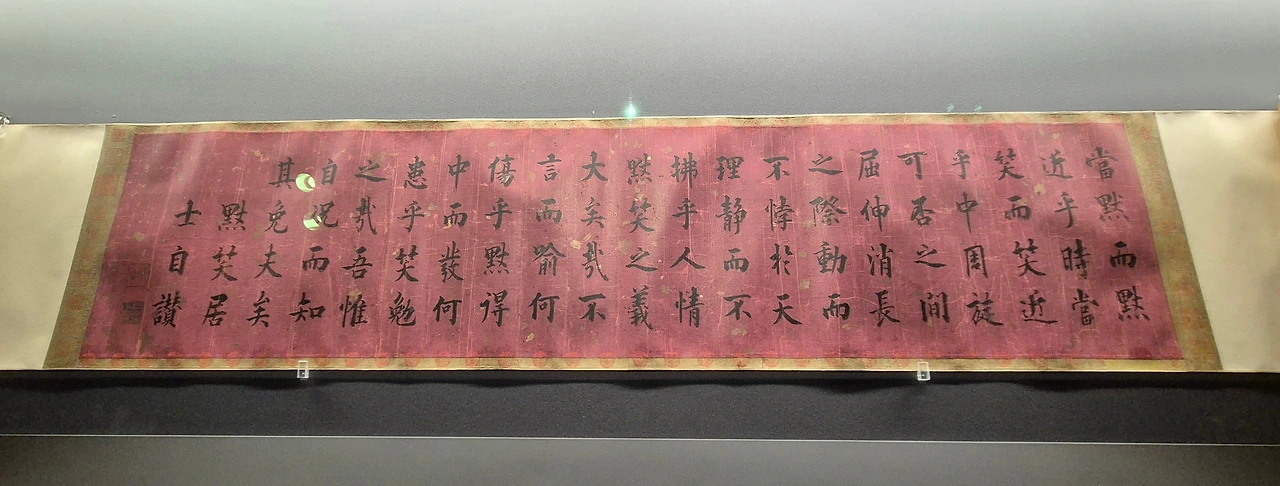 當默而默
近乎時當
笑而笑近
乎中周旋
可否之間
屈伸消長
之際動而
不悖於天
理静而不
拂乎人情
默笑之義
大矣哉不
言而喻何
傷乎默得
中而發何
患乎笑勉
之哉吾惟
自況而知
其免夫矣
默笑居
士自讚